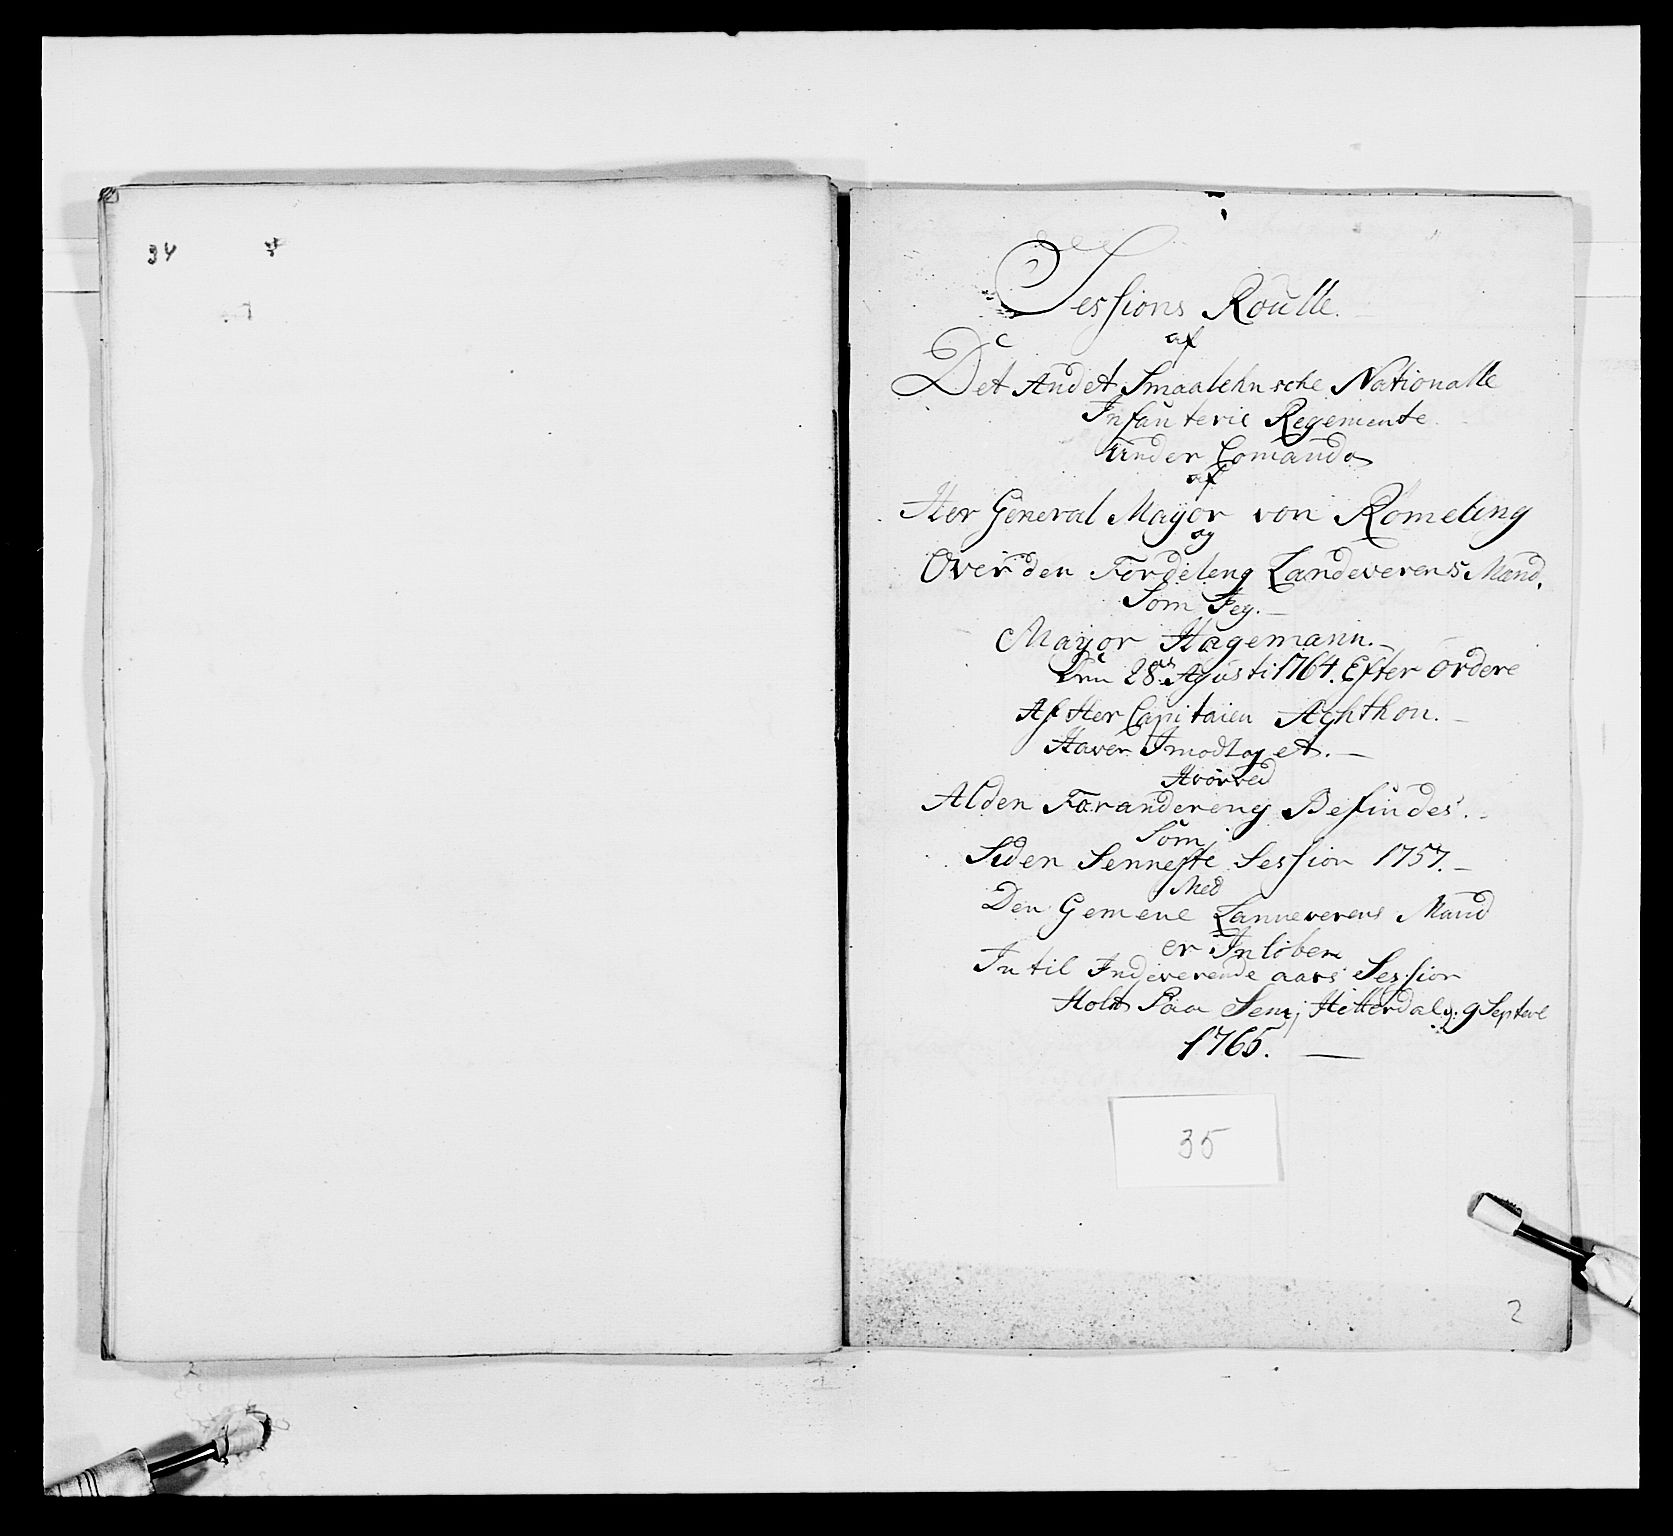 34
Sessions Roulle.
af
Det Andet Smaalehnsche Nationalle
Infanterie Regemente
under Comando
af
Her General Mayor von Römeling
og
Over den Fordeleng Landeverens Mand,
Som Jeg.
Mayor Hagemann.
28 Agusti 1764. Efter ordere
Af Her Capitaien Achthon.
Haver Imodtaget.
Hvorved
Alden Forandereng Befindes.
Som
Siden Senneste Session 1757.
Med
Den Gemene Lanneverens Mand
er Inlöben
In til Indeverende aars Session
Holt Paa Sem j Hitterdal d. 9 Septere
1765.
35
2